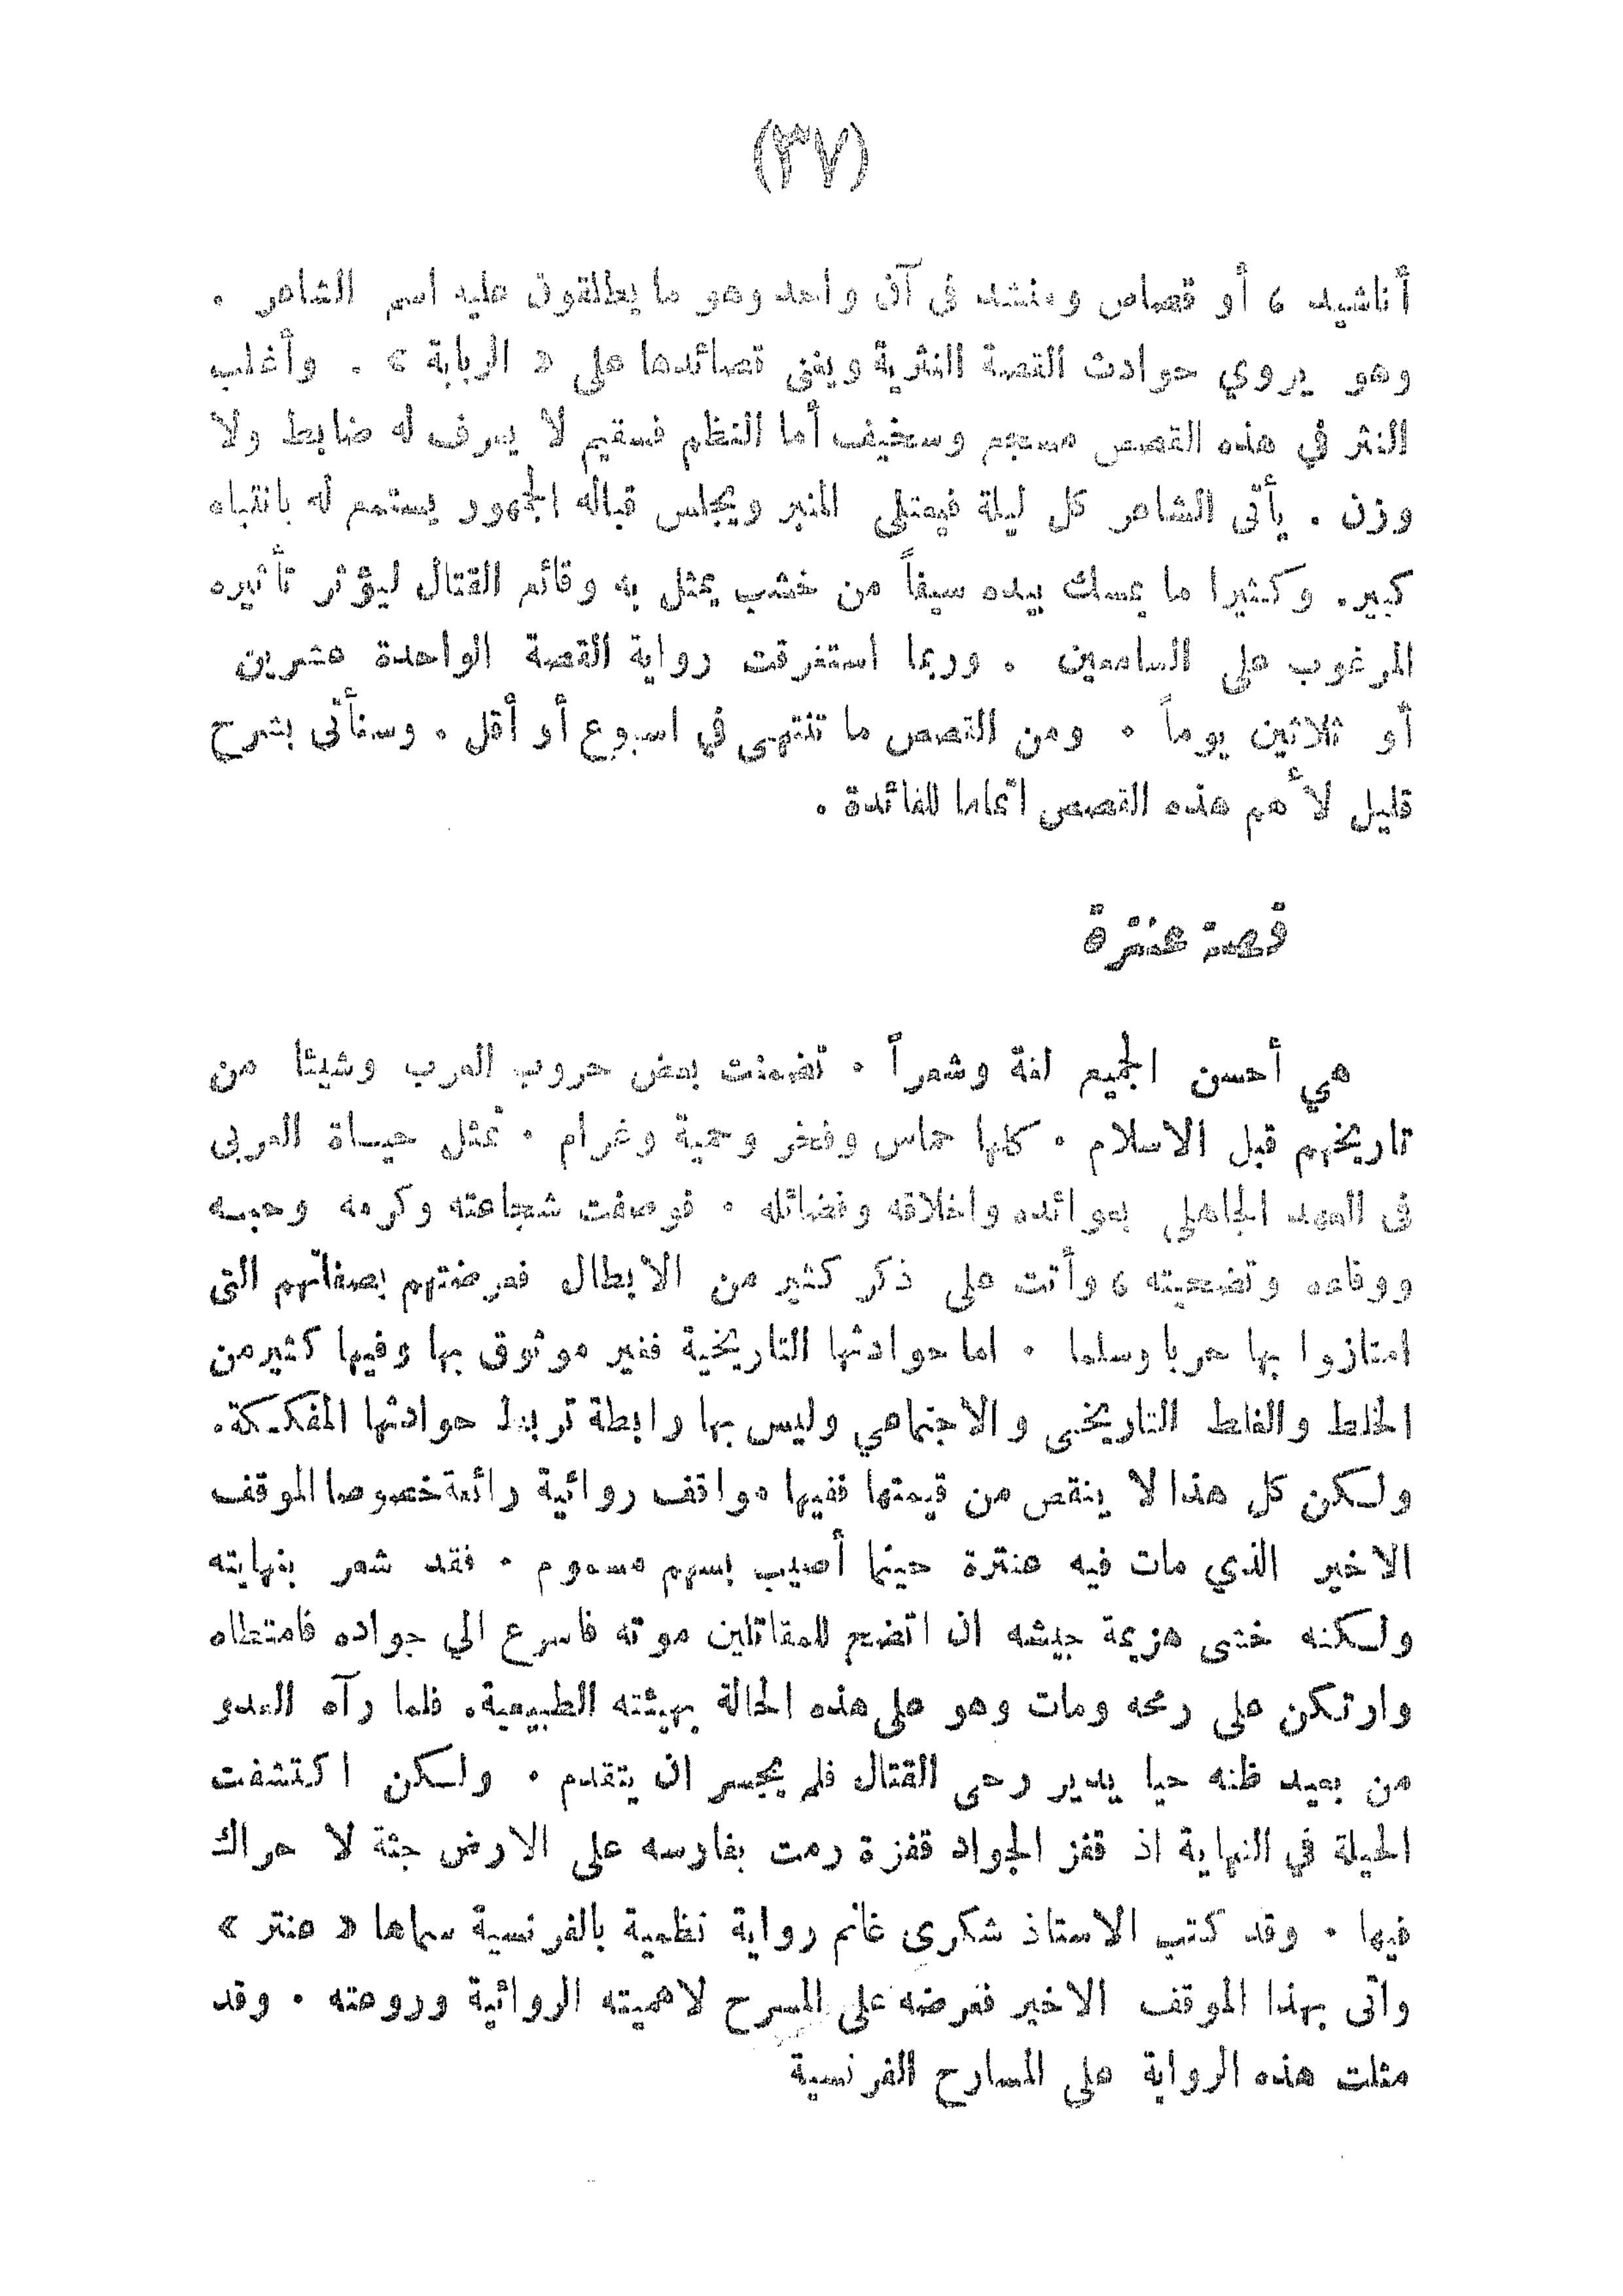 (٣٧)
أناشيد ، أو قصاص ومنشد في آن واحد وهو ما يطلقون عليه اسم الشاعر .
وهو يروي حوادث القصة النثرية ويغني قصائدها على « الربابة » . وأغلب
النثر في هذه القصص مسجع وسخيف أما النظم فسقيم لا يعرف له ضابط ولا
وزن . يأتى الشاعر كل ليلة فيعتلى المنبر ويجلس قباله الجمهور يستمع له بانتباه
كبير. وكثيرا ما يمسك بيده سيفاً من خشب يمثل به وقائع القتال ليؤثر تأثيره
المرغوب على السامعين . وربما استغرقت رواية القصة الواحدة عشرين
أو ثلاثين يوماً . ومن القصص ما تنتهى في اسبوع أو أقل . وسنأتى بشرح
قليل لأهم هذه القصص اتماما للفائدة .
قصة عنترة
هي أحسن الجميع لغة وشعراً . تضمنت بعض حروب العرب وشيئا من
تاريخهم قبل الاسلام . كلها حماس وفخر وحمية وغرام . تمثل حياة العربى
فى العهد الجاهلى بعوائده واخلاقه وفضائله . فوصفت شجاعته وكرمه وحبه
ووفاءه وتضحيته ، وأتت على ذكر كثير من الابطال فعرضتهم بصفاتهم التى
امتازوا بها حربا وسلما . اما حوادثها التاريخية فغير موثوق بها وفيها كثير من
الخلط والغلط التاريخى والاجتماعي وليس بها رابطة تربط حوادثها المفككة.
ولكن كل هذا لا ينقص من قيمتها ففيها مواقف روائية رائعة خصوصا الموقف
الاخير الذي مات فيه عنترة حينما أصيب بسهم مسموم . فقد شعر بنهايته
ولكنه خشى هزيمة جيشه ان اتضح للمقاتلين موته فاسرع الي جواده فامتطاه
وارتكن على رمحه ومات وهو على هذه الحالة بهيئته الطبيعية. فلما رآه العدو
من بعيد ظنه حيا يدير رحى القتال فلم يجسر ان يتقدم . ولكن اكتشفت
الحيلة في النهاية اذ قفز الجواد قفزة رمت بفارسه على الارض جثة لا حراك
فيها . وقد كتب الاستاذ شكرى غانم رواية نظمية بالفرنسية سماها « عنتر »
واتى بهذا الموقف الاخير فعرضه على المسرح لاهميته الروائية وروعته . وقد
مثلت هذه الرواية على المسارح الفرنسية